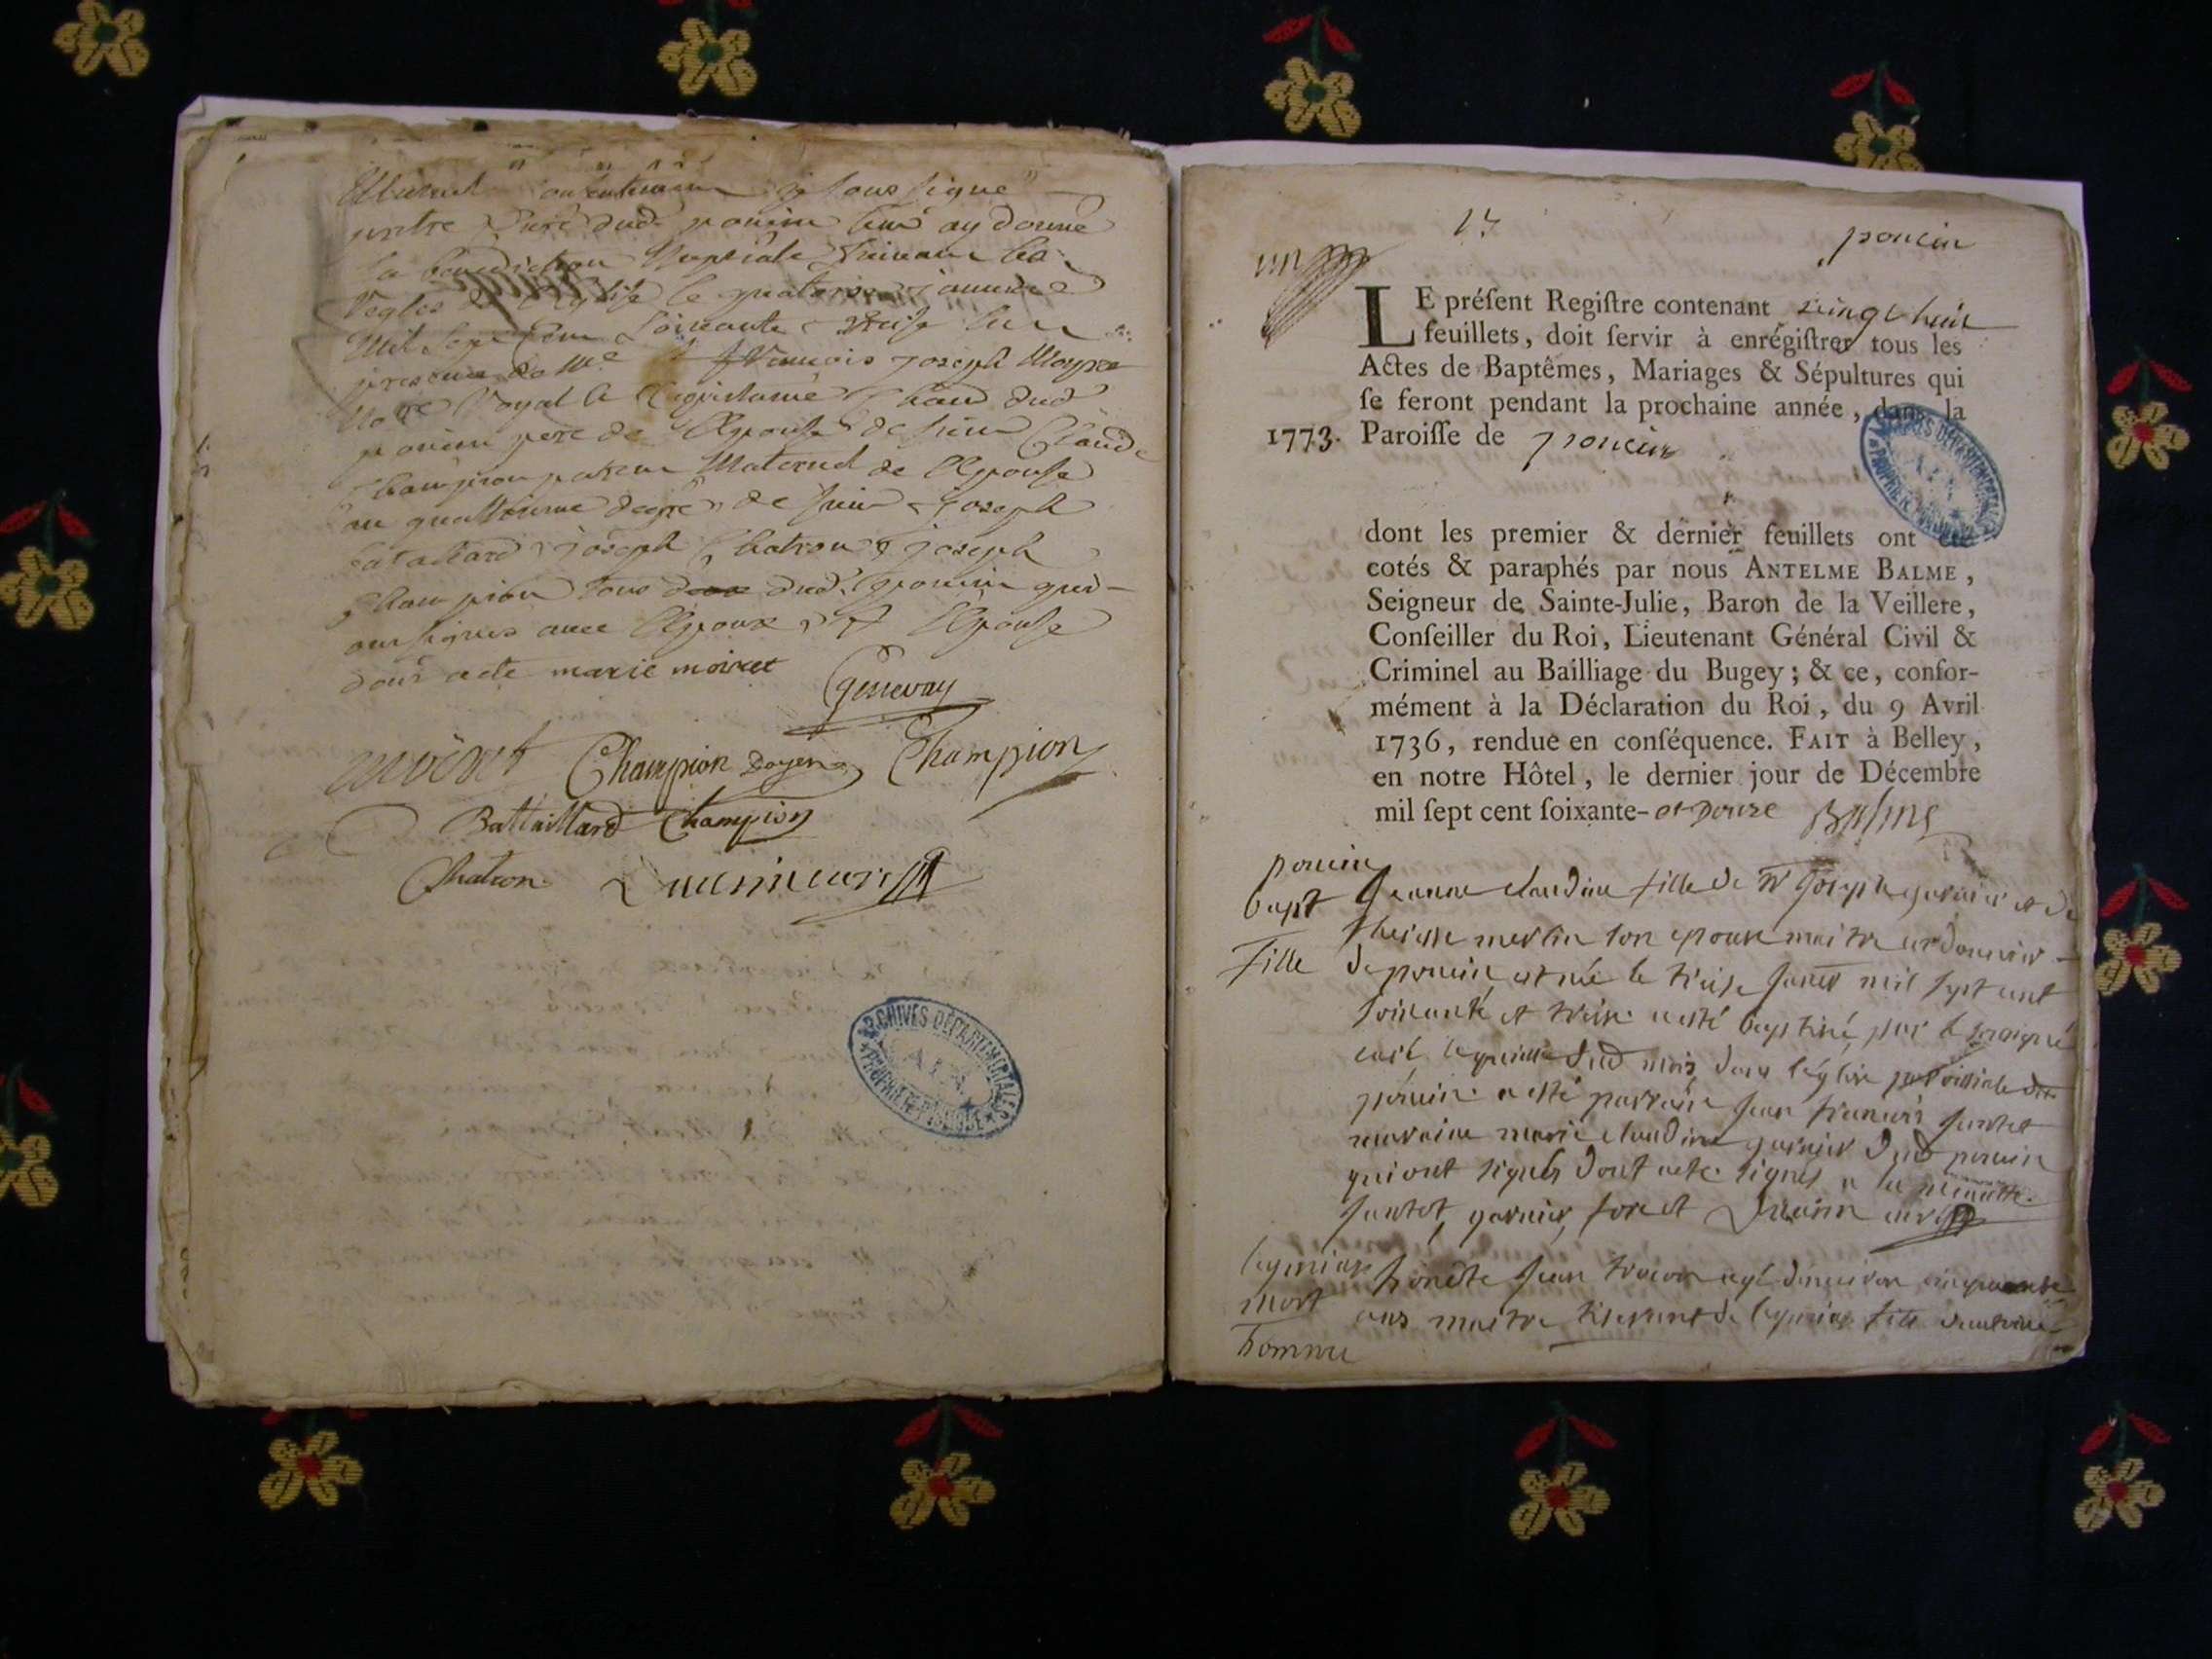 Mutuel consentement je soussigné
prttre Curé dud poncin leur ay donné
la benediction Nuptiale suivant les
Regles de l'Eglise le quatorze janvier
Mil Sept Cent soixante treise en
presence de Me françois joseph Moyret
No.re Royal &
poncin pere de l'Epouse de sieur Claude
Champion parent Maternel de l'Epouse
au quattrieme degré de sieur joseph
bataillard joseph Chatron & joseph
Champion tous dud. poncin qui
ont signés avec l'Epoux & l'Epouse
dont acte marie moiret
Genevay
moiret Champion Doyen Champion
Battaillard Champion
Chatron curé
17
poncin
un
LE préſent Regiſtre contenant vingt huit
feuillets, doit ſervir à enrégiſtrer tous les
Actes de Baptêmes, Mariages & Sépultures qui
ſe feront pendant la prochaine année, dans la
1773. Paroiſſe de poncin
ARCHIVES DÉPARTEMENTALES
AIN
PROPRIÉTÉ PUBLIQUE
dont les premier & dernier feuillets ont été
cotés & paraphés par nous ANTELME BALME,
Seigneur de Sainte-Julie, Baron de la Veillere,
Conſeiller du Roi, Lieutenant Général Civil &
Criminel au Bailliage du Bugey; & ce, confor-
mément à la Déclaration du Roi, du 9 Avril
1736, rendue en conſéquence. FAIT à Belley,
en notre Hôtel, le dernier jour de Décembre
mil ſept cent ſoixante- et douze Balme
poncin
bapt
fille
Jeanne claudine fille de Sr Joseph garnier et de
therese merlin son epouse maitre cordonnier
de poncin est née le treise janer mil sept cent
soixante et treise a esté baptisé par le soussigné
curé le dud mois dans l'église paroissiale de
poncin a esté parrain jean francois
maraine marie claudine garnier dud poncin
qui ont signés dont acte signés a la minutte.
garnier, curé
mort
homme
honéte jean agé d'environ cinquante
ans maitre tisserant de
ARCHIVES DÉPARTEMENTALES
AIN
PROPRIÉTÉ PUBLIQUE